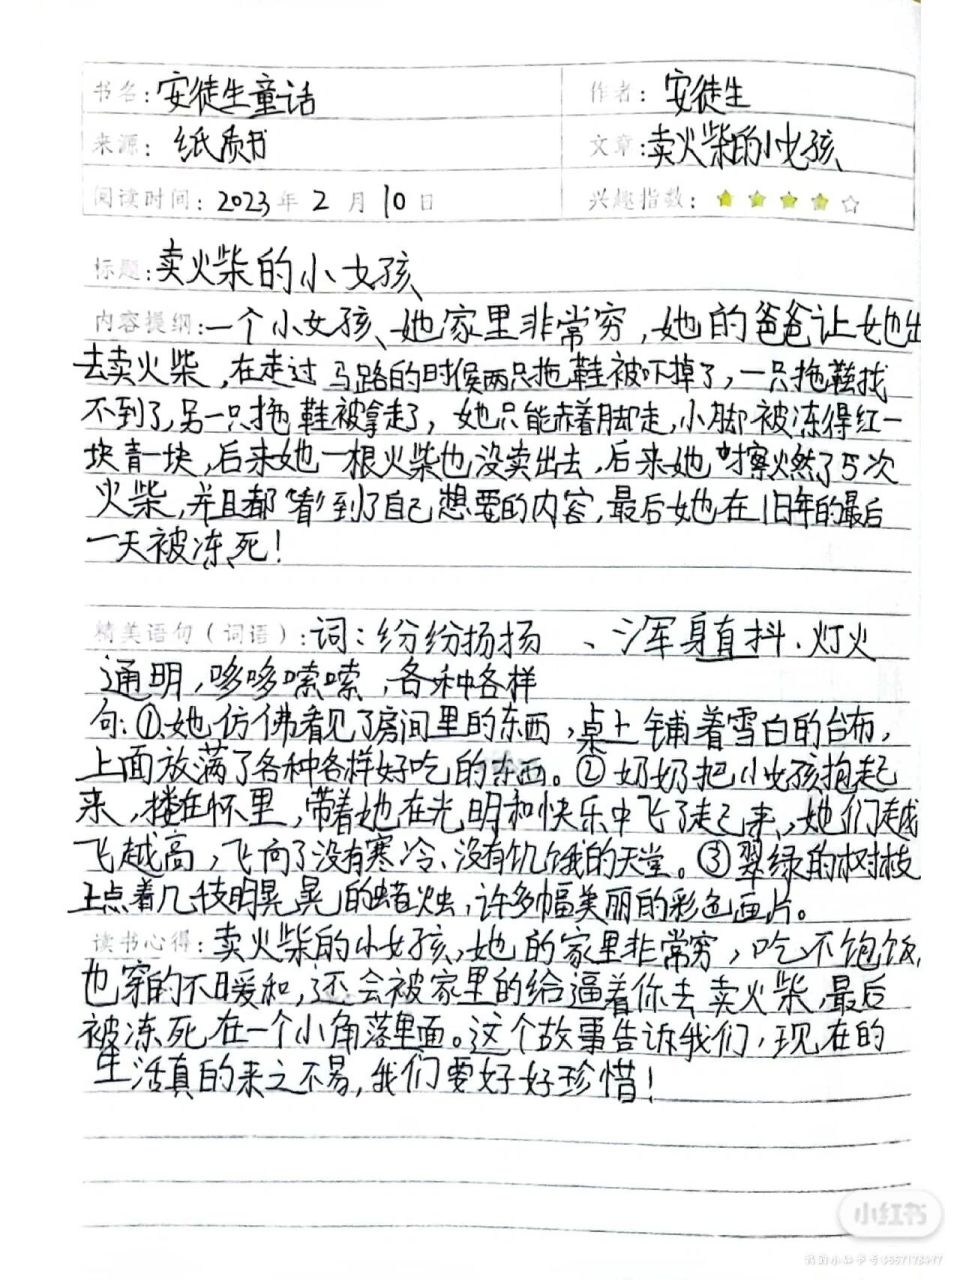 书名:安徒生童话 作者:安徒生
来源:纸质书 文章:卖火柴的小女孩
阅读时间:2023年2月10日 兴趣指数:★★★★☆
标题:卖火柴的小女孩
内容提纲:一个小女孩、她家里非常穷,她的爸爸让她出
去卖火柴,在走过马路的时候两只拖鞋被吓掉了,一只拖鞋找
不到了,另一只拖鞋被拿走了,她只能赤着脚走,小脚被冻得红一
块青一块,后来她一根火柴也没卖出去,后来她擦燃了5次
火柴,并且都看到了自己想要的内容,最后她在旧年的最后
一天被冻死!
精美语句(词语):词:纷纷扬扬、浑身直抖、灯火
通明,哆哆嗦嗦,各种各样
句:①她仿佛看见了房间里的东西,桌上铺着雪白的台布,
上面放满了各种各样好吃的东西。②奶奶把小女孩抱起
来,搂在怀里,带着她在光明和快乐中飞了起来,她们越
飞越高,飞向了没有寒冷、没有饥饿的天堂。③翠绿的树枝
上点着几枝明晃晃的蜡烛,许多幅美丽的彩色画片。
读书心得:卖火柴的小女孩,她的家里非常穷,吃不饱饭,
也穿的不暖和,还会被家里的给逼着你去卖火柴,最后
被冻死在一个小角落里面。这个故事告诉我们,现在的
生活真的来之不易,我们要好好珍惜!
小红书